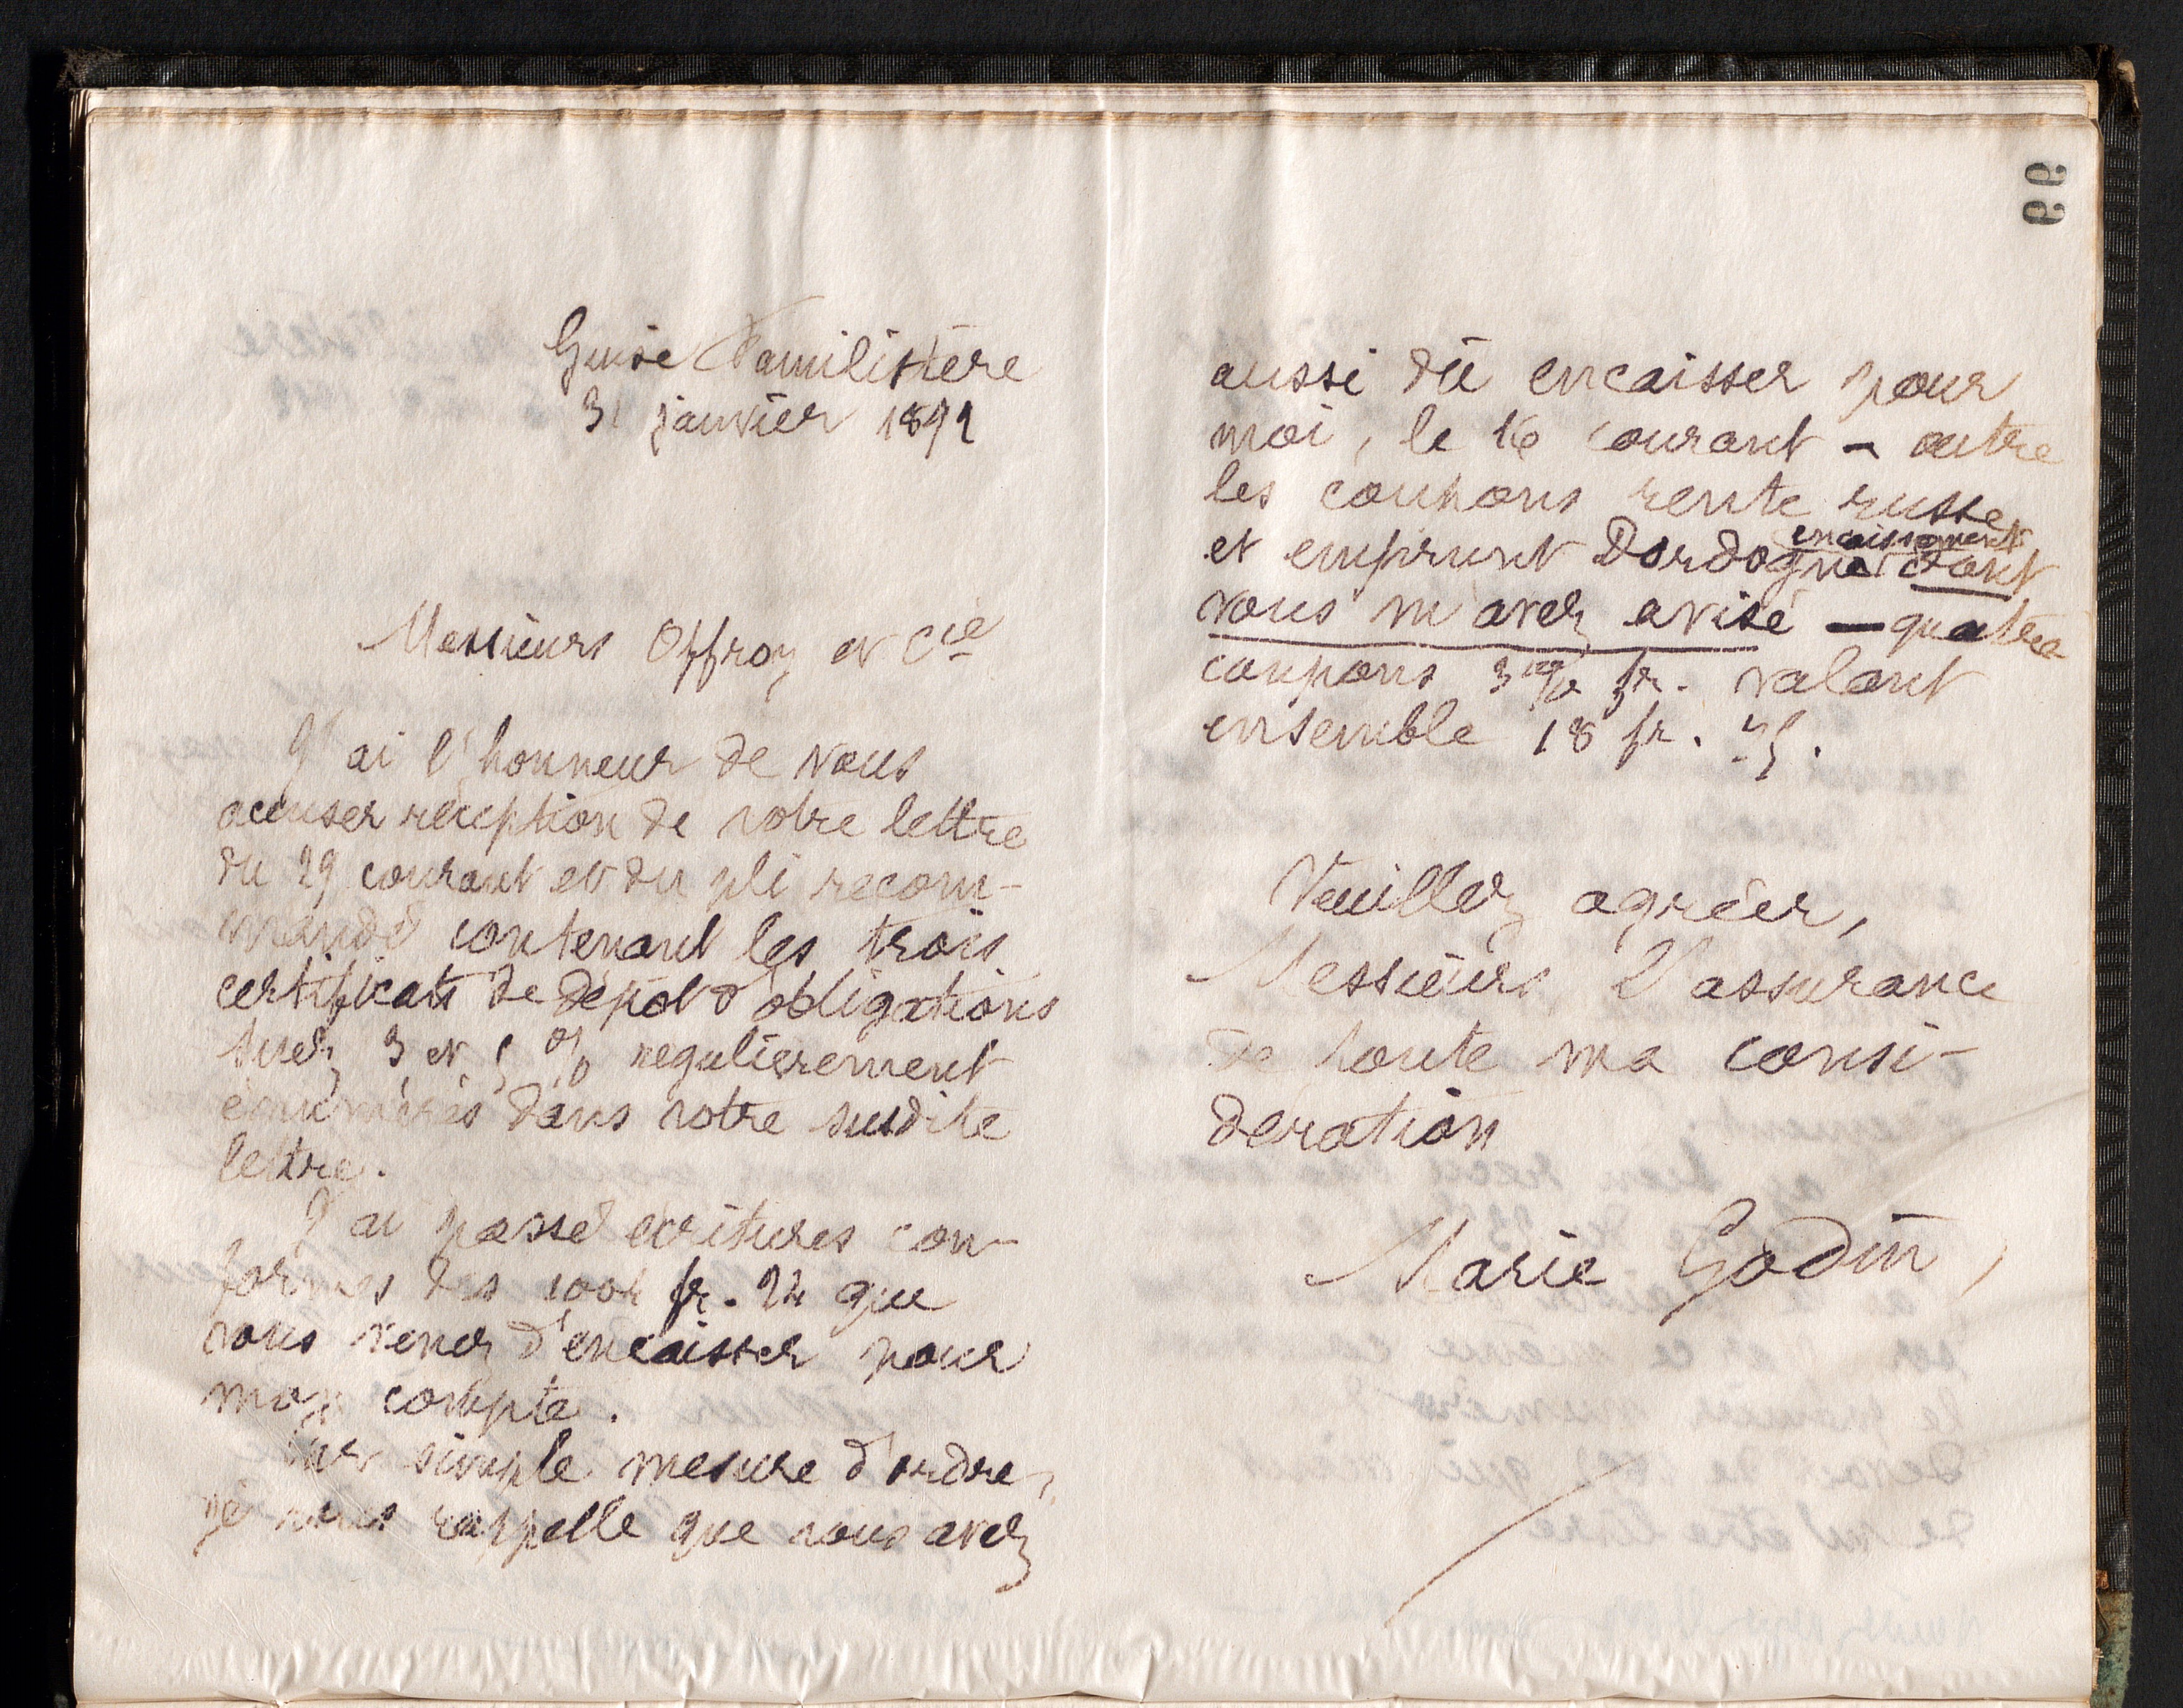 Guise Familistère
31 janvier 1891
Messieurs Offroy et Cie
J'ai l'honneur de vous
accuser réception de votre lettre
du 29 courant et du pli recom-
mandé contenant les trois
certificats de dépôt d'obligations
Suez 3 et 5 % regulièrement
énumérés dans votre susdite
lettre.
J'ai passé écritures con-
formes des fr. 24 que
vous venez d'encaisser pour
mon compte.
Par simple mesure d'ordre,
je vous rappelle que vous avez
99
aussi dû encaisser pour
moi, le 16 courant - outre
les coupons rente russe
et emprunt Dordogne encaissement dont
vous m'avez avisé — quatre
coupons 3 % fr. valant
ensemble 18 fr. 75.
Veuillez agréer,
Messieurs, l'assurance
de toute ma consi-
dération
Marie Godin